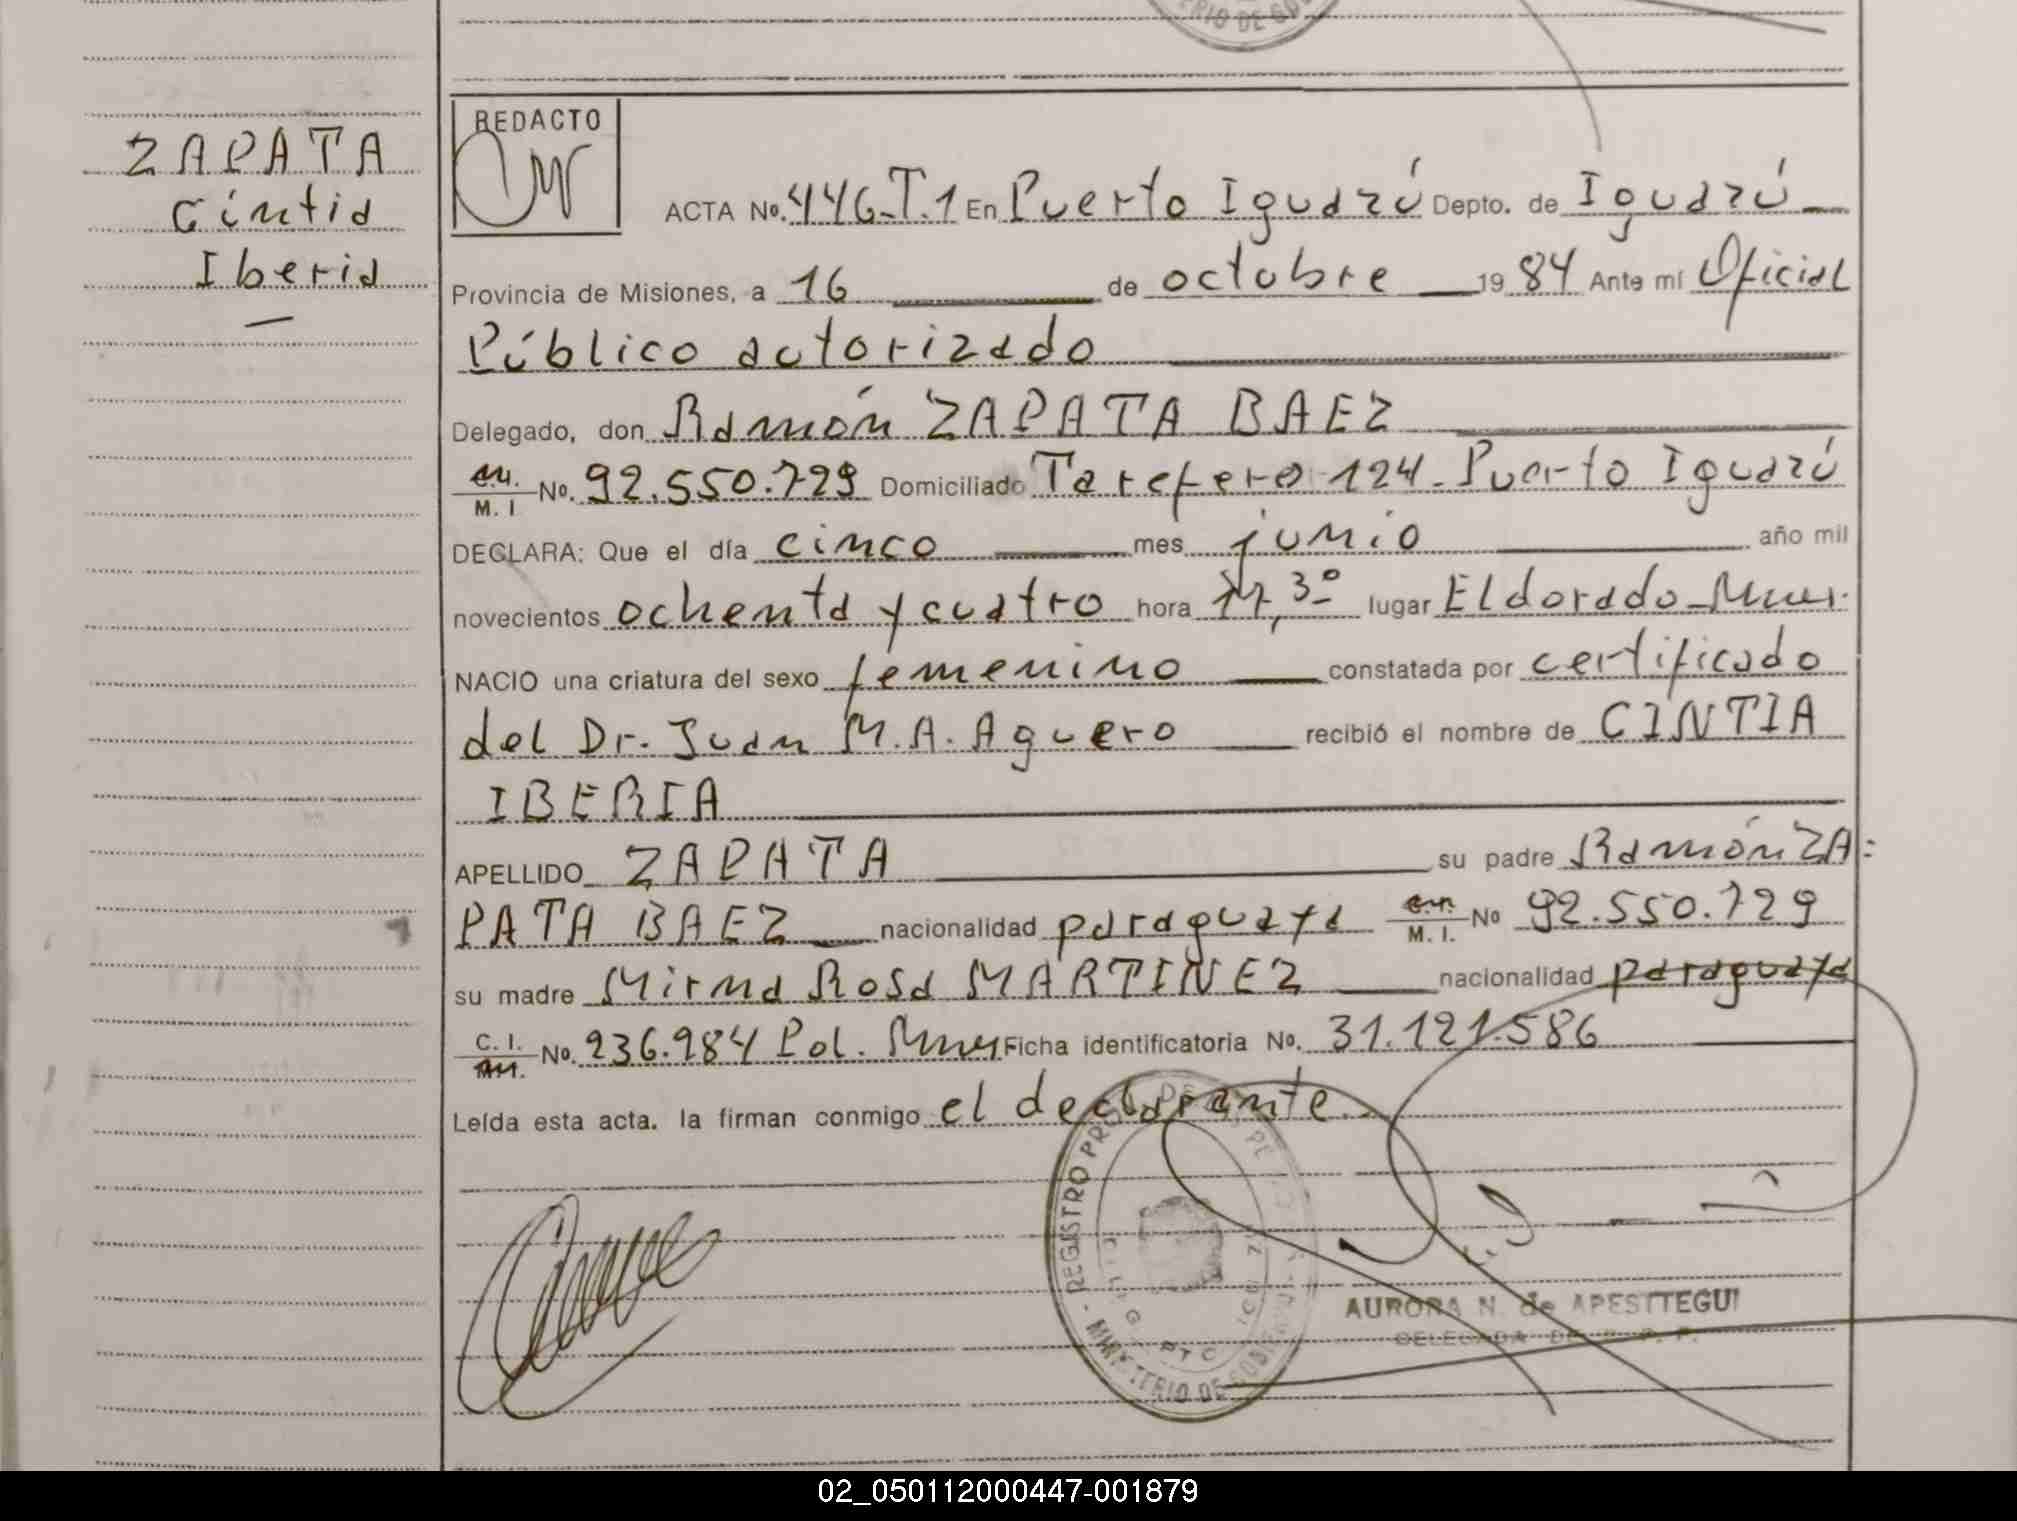 ERIO DE GO
ZAPATA
Cintia
Iberia
REDACTO
ACTA No. 446-T.1 En Puerto Iguazú Depto. de Iguazú
Provincia de Misiones, a 16 de octubre 19 84 Ante mí Oficial
Público autorizado
Delegado, don Ramón ZAPATA BAEZ
M. I No. 92.550.729 Domiciliado Tarefero 124. Puerto Iguazú
DECLARA: Que el día cinco mes junio año mil
novecientos ochenta y cuatro hora 17,30 lugar Eldorado
NACIO una criatura del sexo femenino constatada por certificado
del Dr. Juan M. A. Aguero recibió el nombre de CINTIA
IBERIA
APELLIDO ZAPATA su padre Ramón ZA=
PATA BAEZ nacionalidad paraguaya M. I. No 92.550.729
su madre Mirna Rosa MARTINEZ nacionalidad paraguaya
C. I. No. 236.984 Pol. Ficha identificatoria No. 31.121.586
Leída esta acta. la firman conmigo el declarante.
REGISTRO PRO DE PE
MINISTERIO DE GOBIERNO
AURORA N. de APESTTEGUI
DELEGADA
02_050112000447-001879